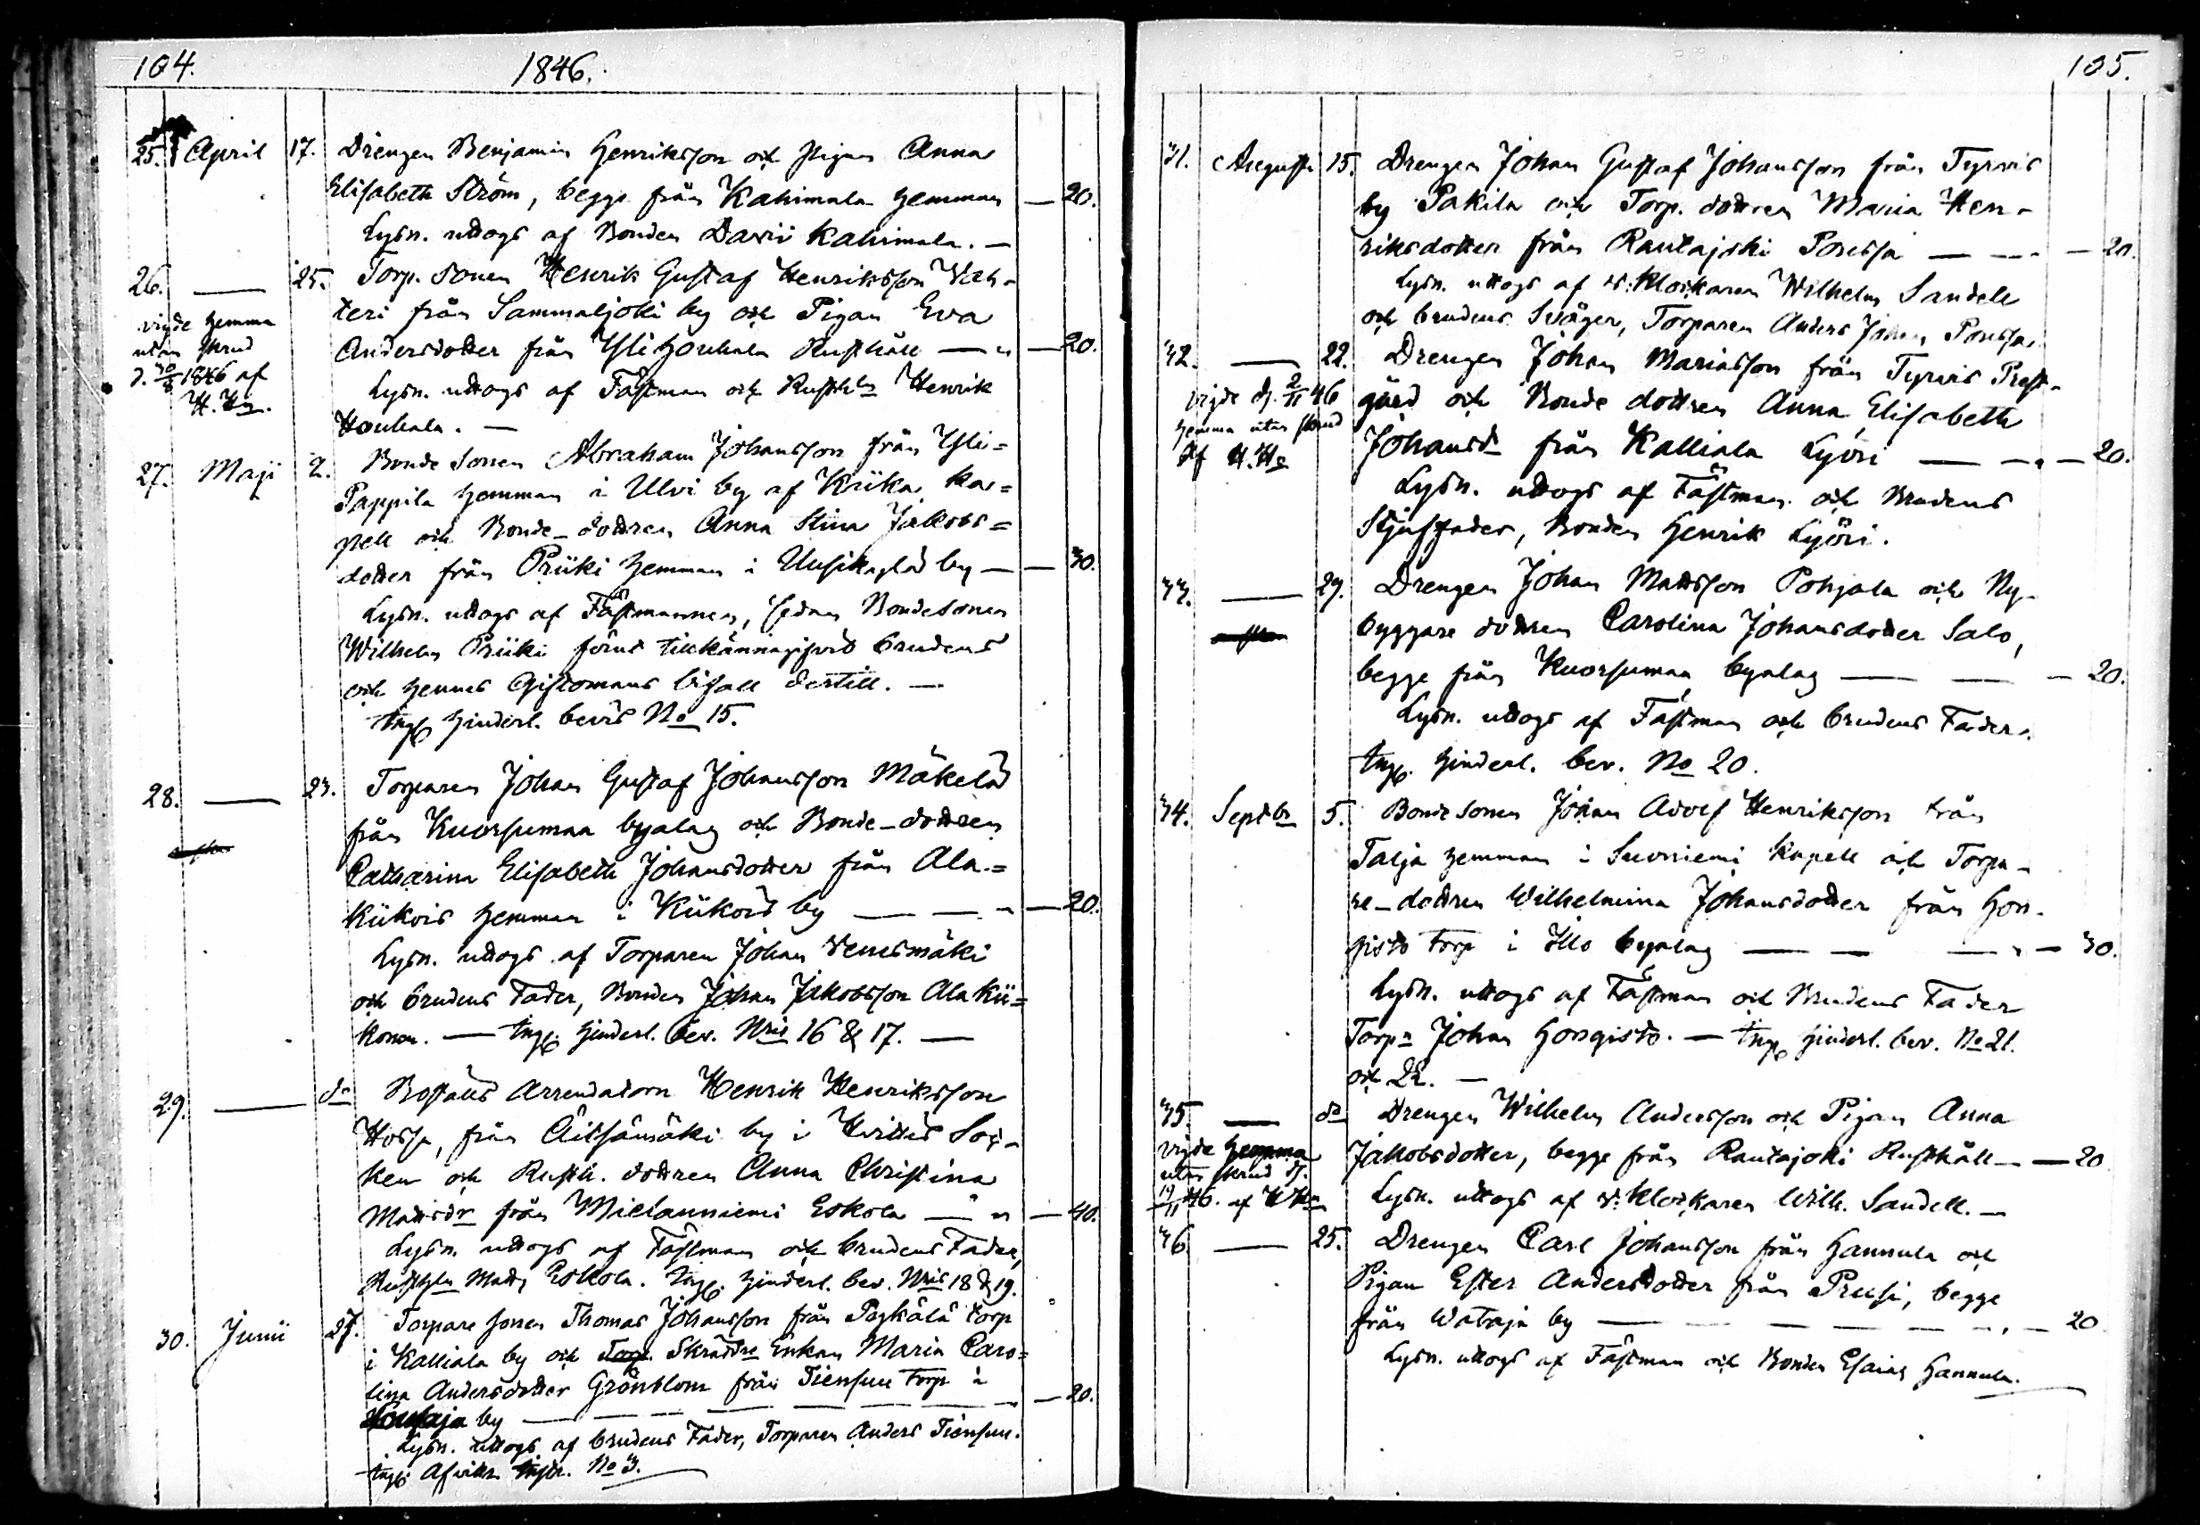 104.
1846.
25. April 17. Drengen Benjamin Henriksson och Pigan Anna
Elisabeth Ström, begge från Kahimala hemman — 20.
Lysn. uttogs af Bonden Davii Kahimala. —
26. — 25. Torp. sonen Henrik Gustaf Henriksson
teri från Sammaljoki by och Pigan Eva
vigde hemma
utan skrud
d. 30/8 1846 af
H. Hn.
Andersdotter från Yli Houhala Rusthåll — " — 20.
Lysn. uttogs af Fästman och Rusth. Henrik
Houhala. —
27. Maji 2. Bonde Sonen Abraham Johansson från Yli=
Pappila hemman i Ulvi by af Kiika ka=
pell och Bonde-dottren Anna Stina Jakobs=
dotter från Priiki hemman i Uusikylä by — — 30.
Lysn. uttogs af Fästmannen, sedan Bondesonen
Wilhelm Priiki förut tillkännagifvit brudens
och hennes Giftomans bifall dertill. —
Ingt hinderl. bevis No 15.
28. — 23. Torparen Johan Gustaf Johansson Mäkelä
från Kuorsumaa byalag och Bonde-dottren
Catharina Elisabeth Johansdotter från Ala=
Kiikois hemman i Kiikois by — — " — 20.
Lysn. uttogs af Torparen Johan Venesmäki
och brudens Fader, Bonden Johan Jakobsson Ala Kii=
konen. — Ingt hinderl. bev. Nris 16 & 17. —
29. — do Boställs arrendatorn Henrik Henriksson
Hossa, från by i Hvittis Soc=
ken och Rusth. dottren Anna Christina
Mattsdr från Mielauniemi Eskola — " " — 40.
Lysn. uttogs af Fästman och brudens Fader,
Rusth. Matts Eskola. Ingt. hinderl. bev. Nris 18 & 19.
30. Junii 27. Torpare sonen Thomas Johansson från Pyhälä torp
i Kalliala by och Torp. Skräddre Enkan Maria Caro=
lina Andersdotter Grönblom från Tiensuu torp i
by — — — — — — — 20.
Lysn. uttogs af brudens Fader, Torparen Anders Tiensuu.
Ingt. Afvittr. Instr. No 3.
105.
31. Augusti 15. Drengen Johan Gustaf Johansson från Tyrvis
by Pakila och Torp. dottren Maria Hen-
riksdotter från Rautajoki Ponssa — — — 20.
Lysn. uttogs af v. Klockaren Wilhelm Sandell
och brudens Svåger, Torparen Anders Johan Ponssa.
32. — 22. Drengen Johan Mariasson från Tyrvis Prest-
vigde d. 2/11 46
hemma utan skrud
af H. Hn
gård och Bonde dottren Anna Elisabeth
Johansdr från Kalliala Lyöri — — " — 20.
Lysn. uttogs af Fästman och Brudens
Stjuffader, Bonden Henrik Lyöri.
33. — 29. Drengen Johan Mattsson Pohjala och Ny-
byggare dottren Carolina Johansdotter Salo,
begge från Kuorsumaa byalag — — — 20.
Lysn. uttogs af Fästman och brudens Fader.
Ingt. hinderl. bev. No 20.
34. Septbr 5. Bonde Sonen Johan Adolf Henriksson från
Talja hemman i Suoniemi Kapell och Torpa-
re-dottren Wilhelmina Johansdotter från Hon-
gisto torp i Illo byalag — — — " — 30.
Lysn. uttogs af Fästman och Brudens Fader
Torpn Johan Hongisto. — Ingt hinderl. bev. No 21.
och 22. —
35. — do Drengen Wilhelm Andersson och Pigan Anna
vigde hemma
utan skrud d.
19/11 46. af H Hn
Jakobsdotter, begge från Rautajoki Rusthåll — — 20
Lysn. uttogs af v. Klockaren Wilh. Sandell. —
36 — 25. Drengen Carl Johansson från Hannula och
Pigan Ester Andersdotter från Preusi, begge
från Wataja by — — — — — — " — 20
Lysn. uttogs af Fästman och Bonden Esaias Hannula.